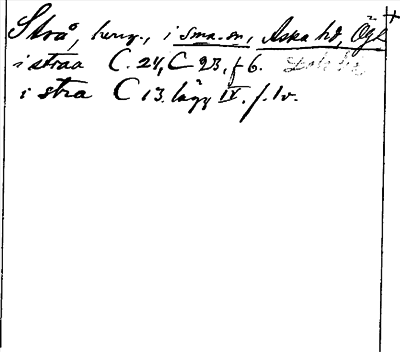 Strå, i sma.sn, Aska hd, Ög +
i straa C. 24, C 23. f 6.
i stra C 13. lägg IV. f. 1v.